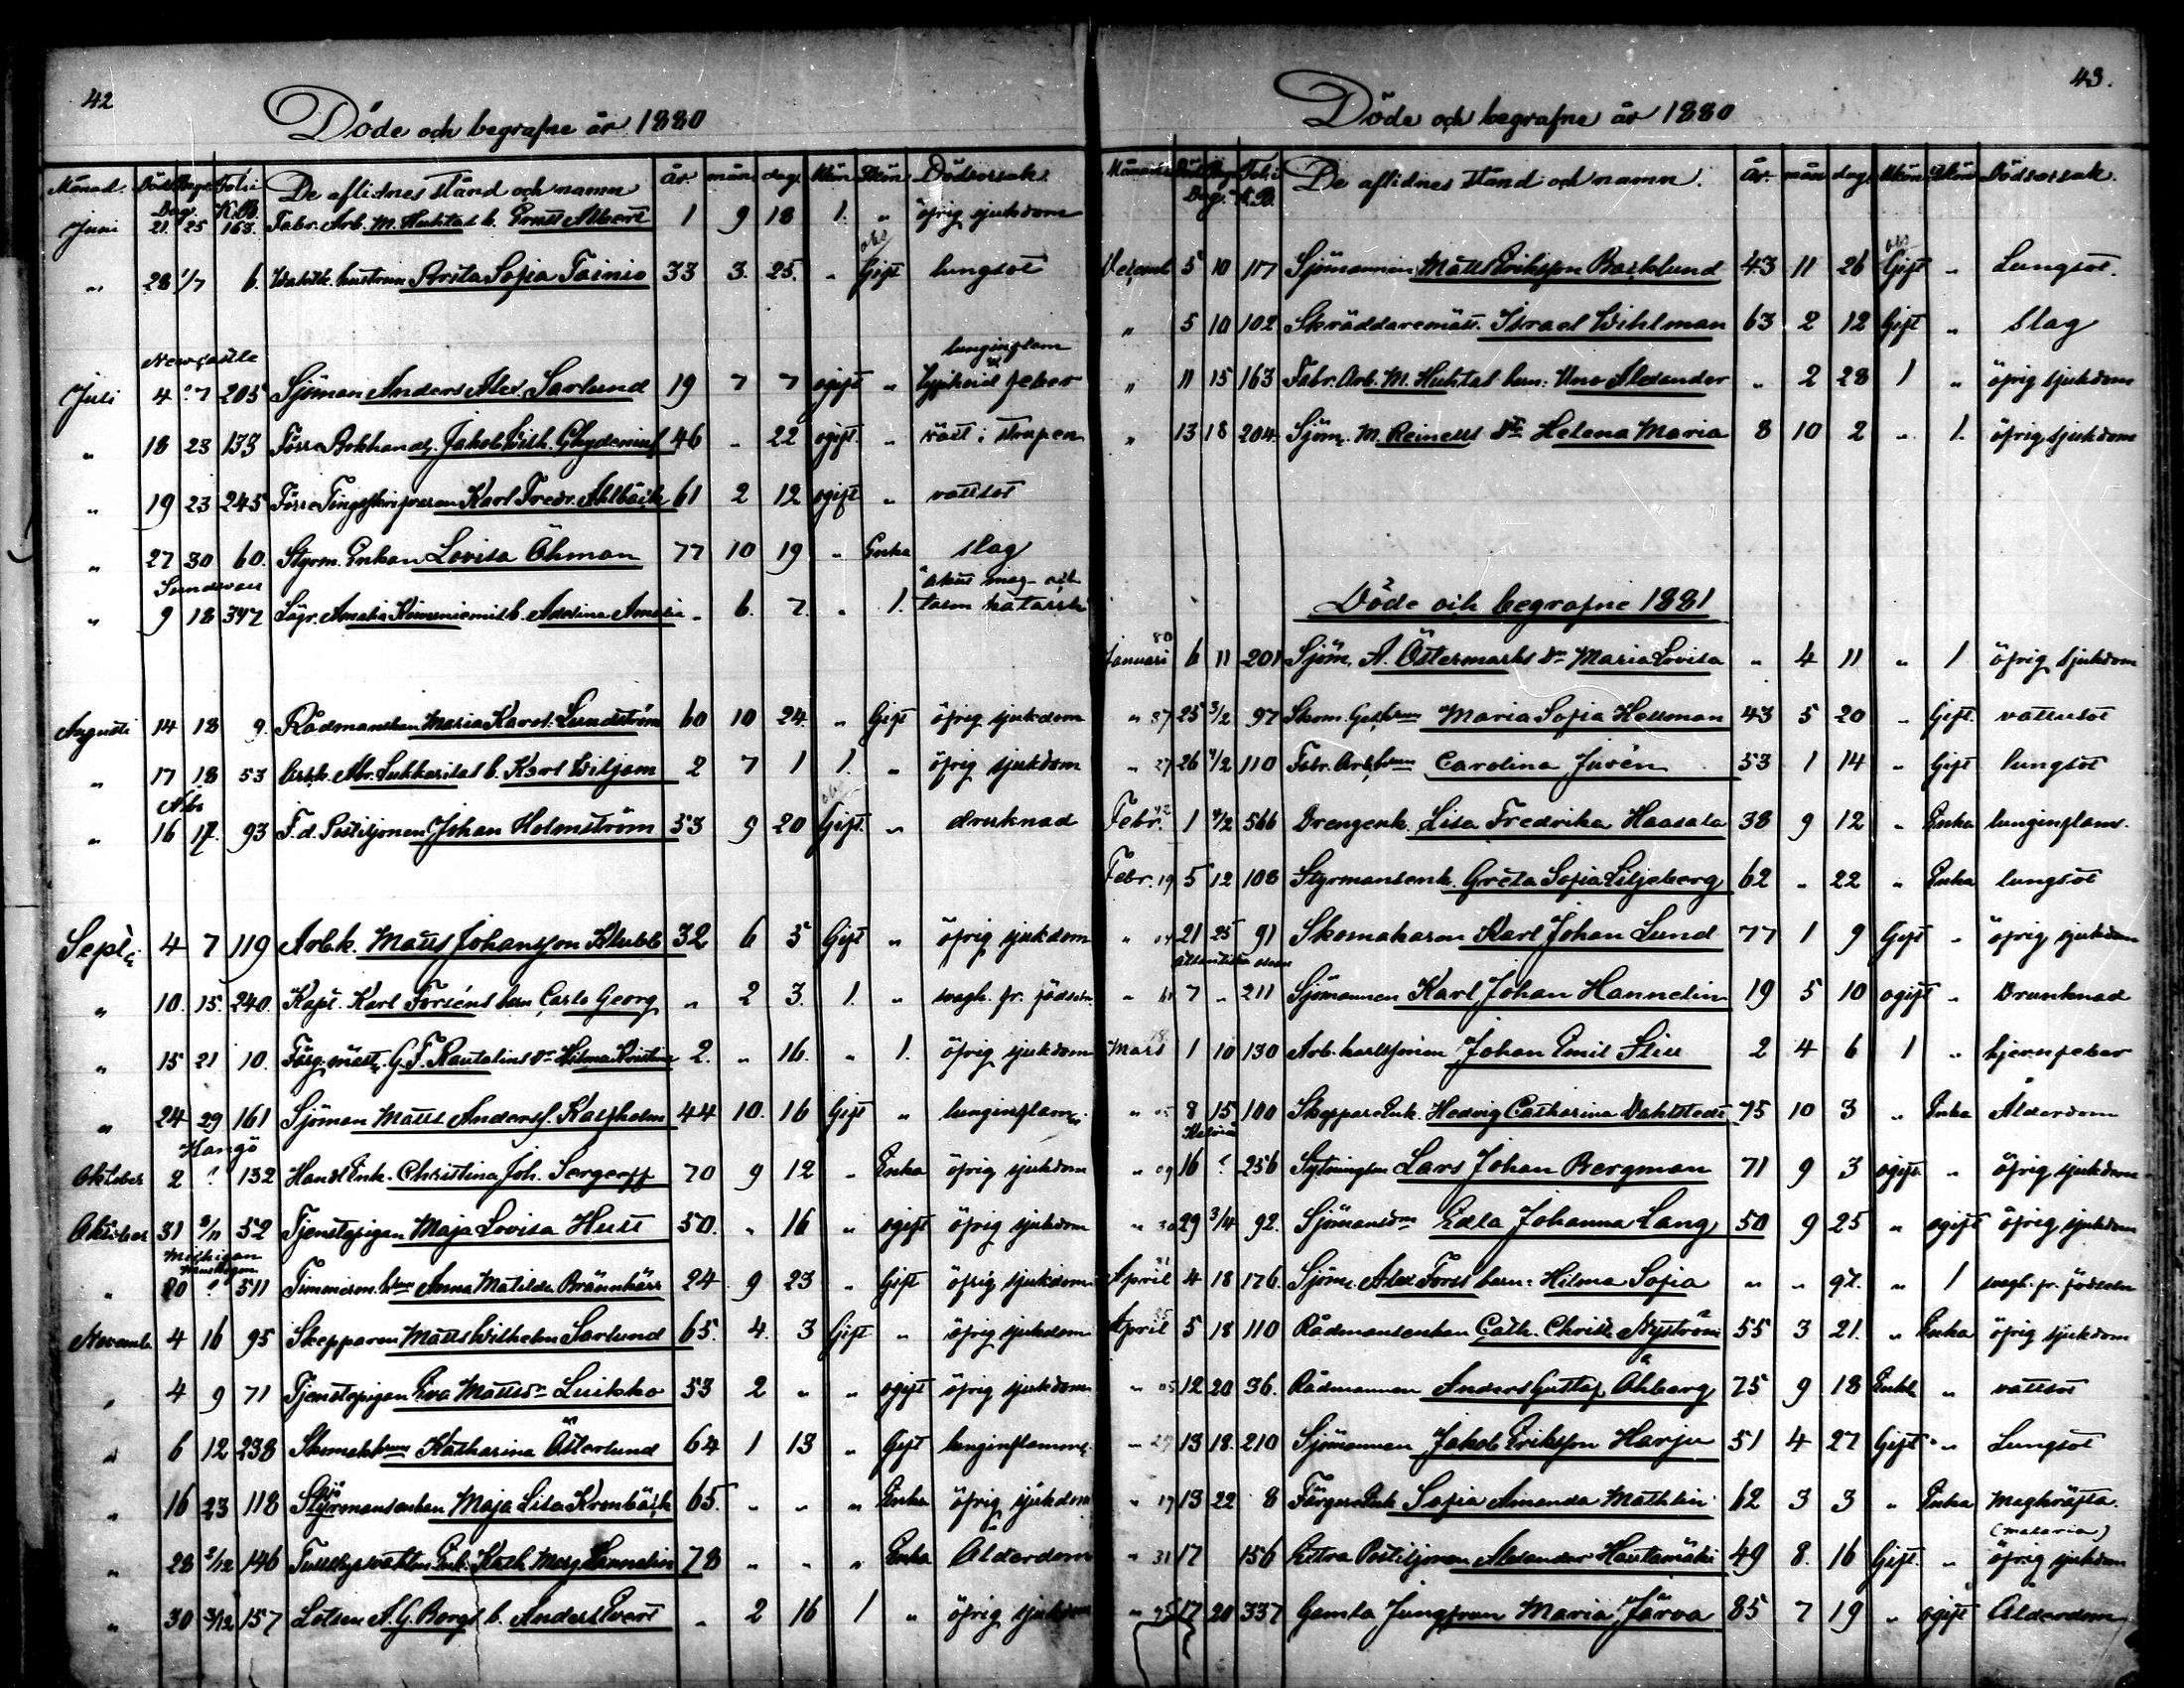 42
Döde och begrafne år 1880
Månad. Död Begr. Folio De aflidnes stånd och namn år. mån. dag. Mkön Qkön Dödsorsak.
Dag. K.B.
Juni 21. 25 163. Fabr. Arb. M. Huhtas b. Ernst Albert 1 9 18 1. „ öfrig sjukdom
obs
„ 28 1/7 6. hustrun Greta Sofia Tainio 33 3. 25. „ Gift lungsot
Newcastle lunginflam
Juli 4 ? 7 205 Sjöman Anders Alex. Sarlund 19 7 7 ogift „ typhoid feber
„ 18 23 133 Förre Bokhandl. Jakob Wilh. Chydenius 46 „ 22 ogift. „ växt i strupen
„ 19 23 245 Förre Tingsskrifvaren Karl Fredr. Ahlbäck 61 2 12 ogift „ vattsot
„ 27 30 60. Styrm. Enkan Lovisa Öhman 77 10 19 „ Enka slag
Sundsvall akut mag- och
„ 9 18 347 Lägr. Amalia b. Adolina Amalia „ 6. 7. „ 1. tarm katarrh
Augusti 14 18 9. Rådmanskan Maria Karol. Lundström 60 10 24. „ Gift öfrig sjukdom
„ 17 18 53 Arbk. Abr. Sukkarilas b. Karl Wiljam 2 7 1 1. „ öfrig sjukdom
Åbo obs
„ 16 17. 93 F. d. Postiljonen Johan Holmström 53 9 20 Gift. „ druknad
Sept. 4 7 119 Arb.k. Matts Johansson Klubb 32 6 5 Gift „ öfrig sjukdom
„ 10. 15. 240. Kapt. Karl Forséns barn Carlo Georg „ 2 3. 1. „ svagh. fr. födseln
„ 15 21 10. Färg.mäst. G. F. Rautalins dr Hilma Kristina 2. „ 16. „ 1. öfrig sjukdom
„ 24 29 161 Sjöman Matts Anderss. Kalfholm 44 10. 16 Gift „ lunginflam.
Hangö
Oktober 2 ? 132 Handl Enk. Christina Joh. Sergeeff 70 9 12 „ Enka öfrig sjukdom
Oktober 31 5/11 52 Tjenstepigan Maja Lovisa Hull 50. „ 16 „ ogift öfrig sjukdom
Michigan
Muskegon
„ 20 ? 511 Timmerm. hru Anna Matilda Brännkärr 24 9 23 „ Gift öfrig sjukdom
Novemb. 4 16 95 Skepparen Matts Wilhelm Sarlund 65. 4. 3 Gift „ öfrig sjukdom
„ 4 9 71 Tjenstepigan Eva Mattsdr Luikko 53 2 „ „ ogift öfrig sjukdom
„ 6 12 238 Skomak hru Katharina Österlund 64 1 13 „ Gift lunginflamm.
„ 16 23 118 Styrmansenkan Maja Lisa Kronbäck 65. „ „ „ Enka öfrig sjukdom
„ 28 2/12 146 Enk. Kath. Marg. Hannelin 78 „ „ „ Enka Ålderdom
„ 30 3/12 157 Lotsen A. G. Borgs b. Anders Evert „ 2 16 1 „ öfrig sjukdom
43.
Döde och begrafne år 1880
Månad Död Begr. Fol. i De aflidnes stånd och namn. år. mån dag. Mkön Qkön Dödsorsak.
Dag. K.B.
obs
Decemb 5 10 117 Sjömannen Matts Eriksson Backlund 43 11 26 Gift „ Lungsot.
„ 5 10 102 Skräddaremäst. Israel Wihlman 63 2 12 Gift „ Slag
„ 11 15 163 Fabr. Arb. M. Huhtas barn: Uno Alexander „ 2 28 1 „ öfrig sjukdom
„ 13 18 204. Sjöm. M. Reinells dtr Helena Maria 8 10 2 „ 1. öfrig sjukdom
Döde och begrafne 1881
80
Januari 6 11 201 Sjöm. A. Östermarks dr Maria Lovisa „ 4 11 „ 1 öfrig sjukdom
„ 37 25 3/2 97 Skom. Ges. hrun Maria Sofia Hellman 43 5 20 „ Gift. vattusot
„ 27 26 4/2 110 Fabr. Arb. hrun Carolina Jusén 53 1 14 „ Gift lungsot
42
Febr. 1 4/2 566 Drengenk. Lisa Fredrika Haasala 38 9 12 „ Enka lunginflam.
Febr. 19 5 12 108 Styrmansenk. Greta Sofia Liljeberg 62 „ 22 „ Enka lungsot
„ 04 21 25 91 Skomakaren Karl Johan Lund 77 1 9 Gift „ öfrig sjukdom
Atlantiska ocean
„ 61 7 „ 211 Sjömannen Karl Johan Hannelin 19 5 10 ogift „ Drunknad
78
Mars 1 10 130 Arb. karlssonen Johan Emil Sliu 2 4 6 1 „ hjernfeber
„ 05 8 15 100 Skeppare Enk. Hedvig Catharina Dahlstedt 75 10 3 „ Enka Ålderdom
Kelviå
„ 09 16 ? 256 Sytningsm Lars Johan Bergman 71 9 3 ogift „ öfrig sjukdom
„ 30 29 3/4 92. Sjömansdn Edla Johanna Lang 50 9 25 „ ogift öfrig sjukdom
81
April 4 18 176. Sjöm. Alex Forss barn: Hilma Sofia „ „ 27. „ 1 svagh. fr. födseln
25
April 5 18 110 Rådmansenkan Cath. Christ. Nyström 55 3 21. „ Enka öfrig sjukdom
„ 05 12 20 36. Rådmannen Anders Gustaf Åhberg 75 9 18 Enkl. „ vattsot
„ 29 13 18. 210 Sjömannen Jakob Eriksson Harju 51 4 27 Gift „ Lungsot
„ 19 13 22 8 Färgare Enk Sofia Amanda Mathlin 62 3 3 „ Enka Magkräfta.
(malaria)
„ 31 17 156 Extra Postiljonen Alexander Hautamäki 49 8. 16 Gift. „ öfrig sjukdom
„ 95 17 20 337 Gamla Jungfrun Maria Järva 85 7 19 „ ogift Ålderdom